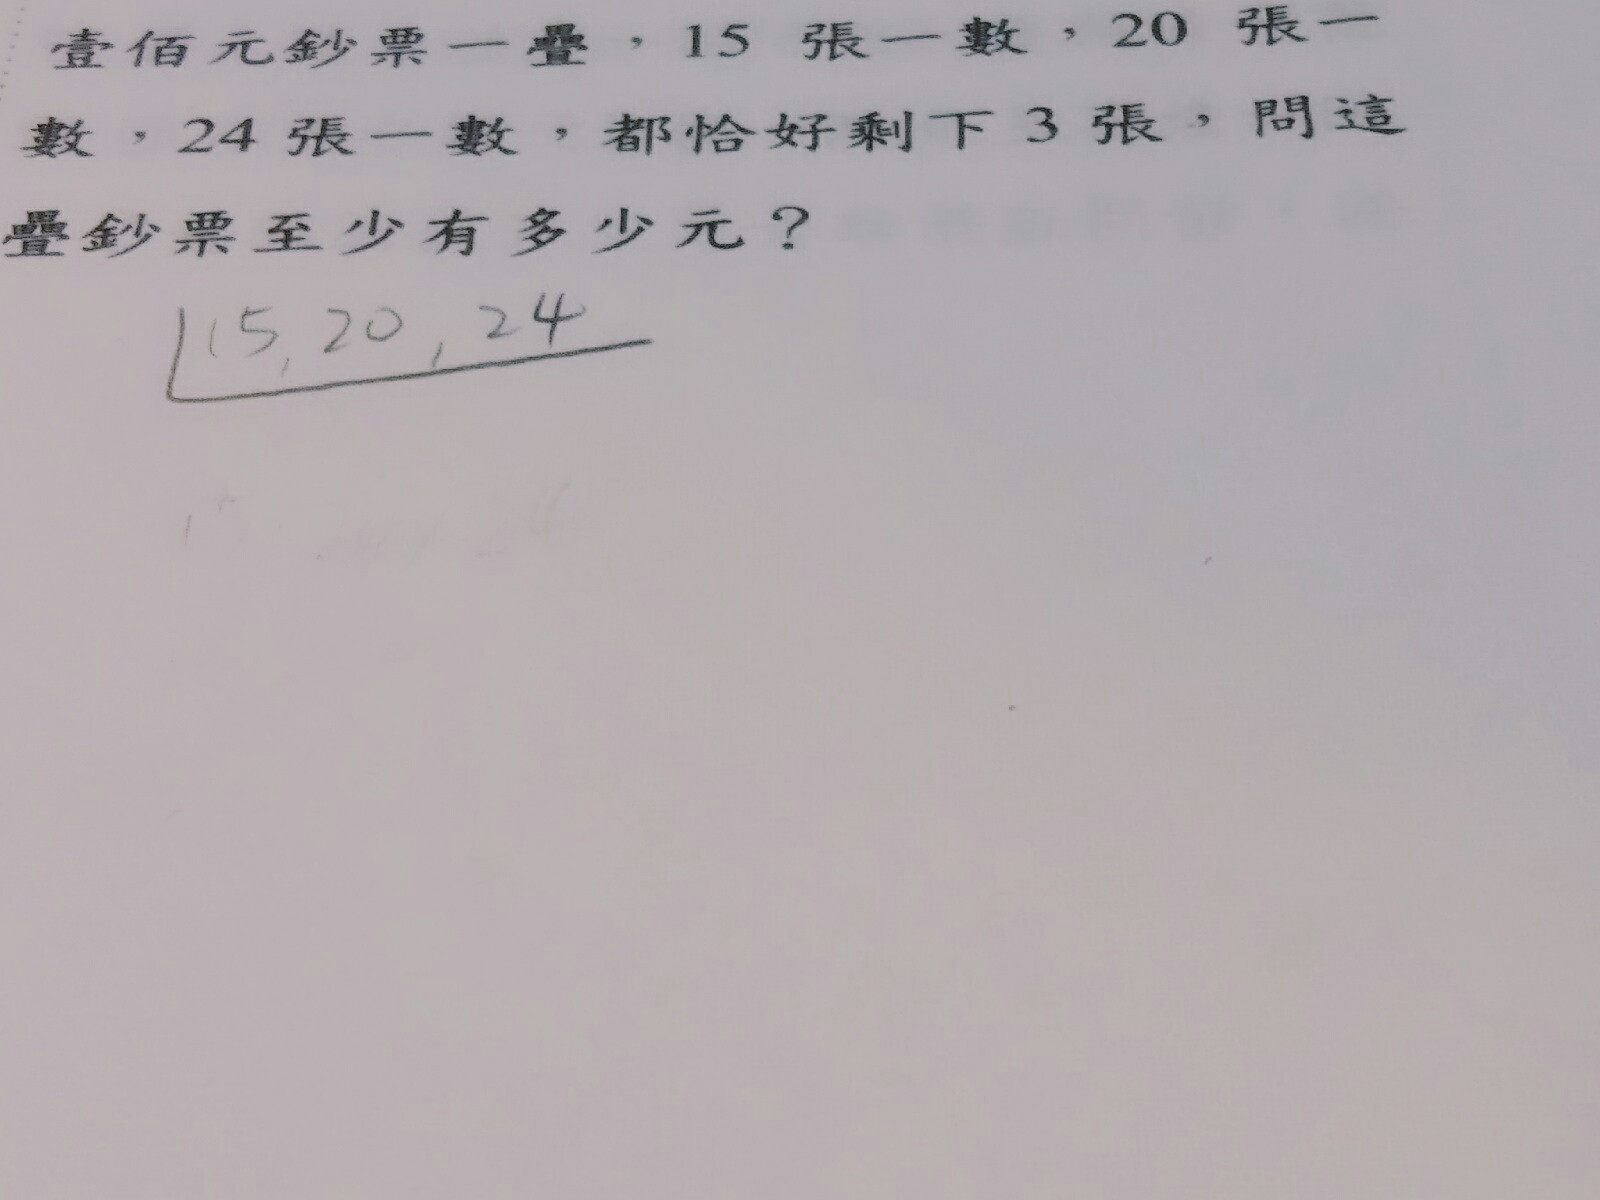 壹佰元鈔票一疊，15 張一數，20 張一
數，24 張一數，都恰好剩下 3 張，問這
疊鈔票至少有多少元？
15, 20, 24